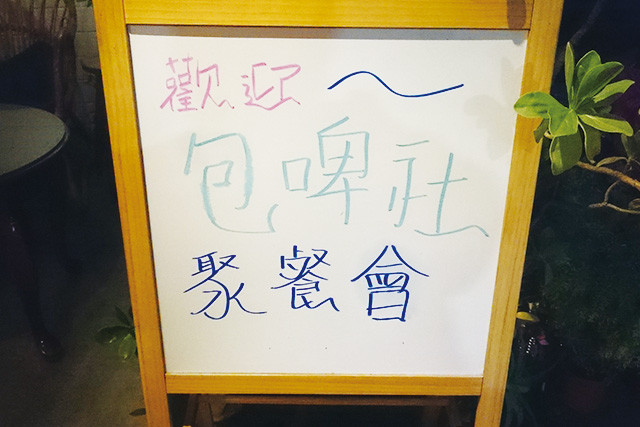 歡迎～
包啤社
聚餐會